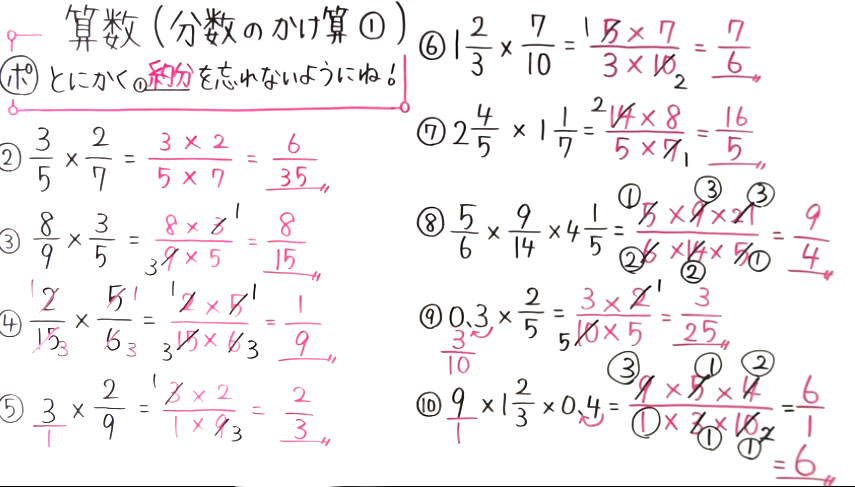 算数(分数のかけ算①)
ポ とにかく①約分を忘れないようにね!
② 3/5 × 2/7 = 3×2/5×7 = 6/35
③ 8/9 × 3/5 = 8×3/9×5 = 8/15
④ 2/15 × 5/6 = 2×5/15×6 = 1/9
⑤ 3/1 × 2/9 = 3×2/1×9 = 2/3
⑥ 1 2/3 × 7/10 = 5×7/3×10 = 7/6
⑦ 2 4/5 × 1 1/7 = 14×8/5×7 = 16/5
⑧ 5/6 × 9/14 × 4 1/5 = 5×9×21/6×14×5 = 9/4
⑨ 0.3 × 2/5 = 3×2/10×5 = 3/25
3/10
⑩ 9/1 × 1 2/3 × 0.4 = 9×5×4/1×3×10 = 6/1
= 6